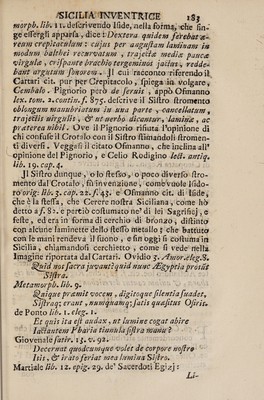 SICILIA INVENTRICE 183
morpb. lib. 11. descrivendo Iside, nella forma, che fin-
ge esserglì apparsa, dice: Dextera quidem ferebat æ-
reum crepitaculum: cujus per augustam laminam in
modum balthei recurvatum, trajectæ mediæ paucæ
virgulæ, crispante brachio tergeminos jactus, redde-
bant argutum sonorem. Il cui racconto riferendo il
Cartari cit. pur per Crepitacolo, spiega in volgare,
Cembalo. Pignorio però de servis, appò Ofmanno
lex. tom. 2. contin. f. 875. descrive il Sistro stromento
oblongum manubriatum in una parte, cancellatum,
trajectis virgulis, & ut verbo dicantur, laminæ, ac
præterea nihil. Ove il Pignorio rifiuta l'opinione di
chi confuse il Crotalo con il Sistro stimandoli stromen-
ti diversi. Veggasi il citato Ofmanno, che inclina all'
opinione del Pignorio, e Celio Rodigino lect. antiq.
lib. 19. cap. 4.
Il Sistro dunque, o lo stesso, o poco diverso stro-
mento dal Crotalo, fu invenzione, come vuole Isido-
ro orig. lib. 3. cap. 21. f. 43. e Ofmanno cit. di Iside,
che è la stessa, che Cerere nostra Siciliana, come hò
detto a f. 82. e perciò costumato ne' di lei Sagrificj, e
feste, ed era in forma di cerchio di bronzo, distinto
con alcune laminette dello stesso metallo; che battuto
con le mani rendeva il suono, e sin oggi si costuma in
Sicilia, chiamandosi cerchietto, come si vede nella
Imagine riportata dal Cartari. Ovidio 3. Amor. eleg. 8.
Quid nos sacra juvant? quid nunc Ægyptia prosùt
Sistra.
Metamorph. lib. 9.
Quique præmit vocem, digitoque silentia suadet,
Sistraq; erant, nunquamq; satis quæsitus Osiris.
de Ponto lib. 1. eleg. 1.
Et quis ita est audax, ut lumine cogat abire
Jactantem Pharia tinnula sistra manu?
Giovenale satir. 13. v. 92.
Decernat quodcumque volet de corpore nostro
Isis, & irato feriat mea lumina Sistro.
Martiale lib. 12. epig. 29. de' Sacerdoti Egizj:
Li-